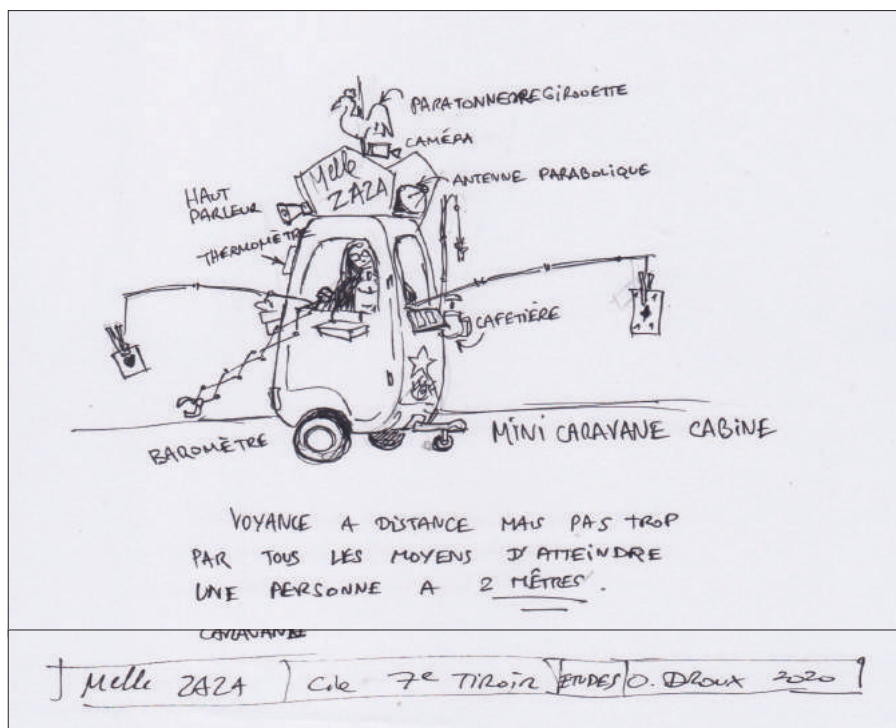 PARATONNERRE GIROUETTE
CAMÉRA
Melle
ZAZA
ANTENNE PARABOLIQUE
HAUT
PARLEUR
THERMOMÈTRE
CAFETIÈRE
BAROMÈTRE
MINI CARAVANE CABINE
VOYANCE A DISTANCE MAIS PAS TROP
PAR TOUS LES MOYENS D'ATTEINDRE
UNE PERSONNE A 2 MÊTRES.
CARAVANE
Melle ZAZA Cie 7e TIROIR ETUDES O. DROUX 2020